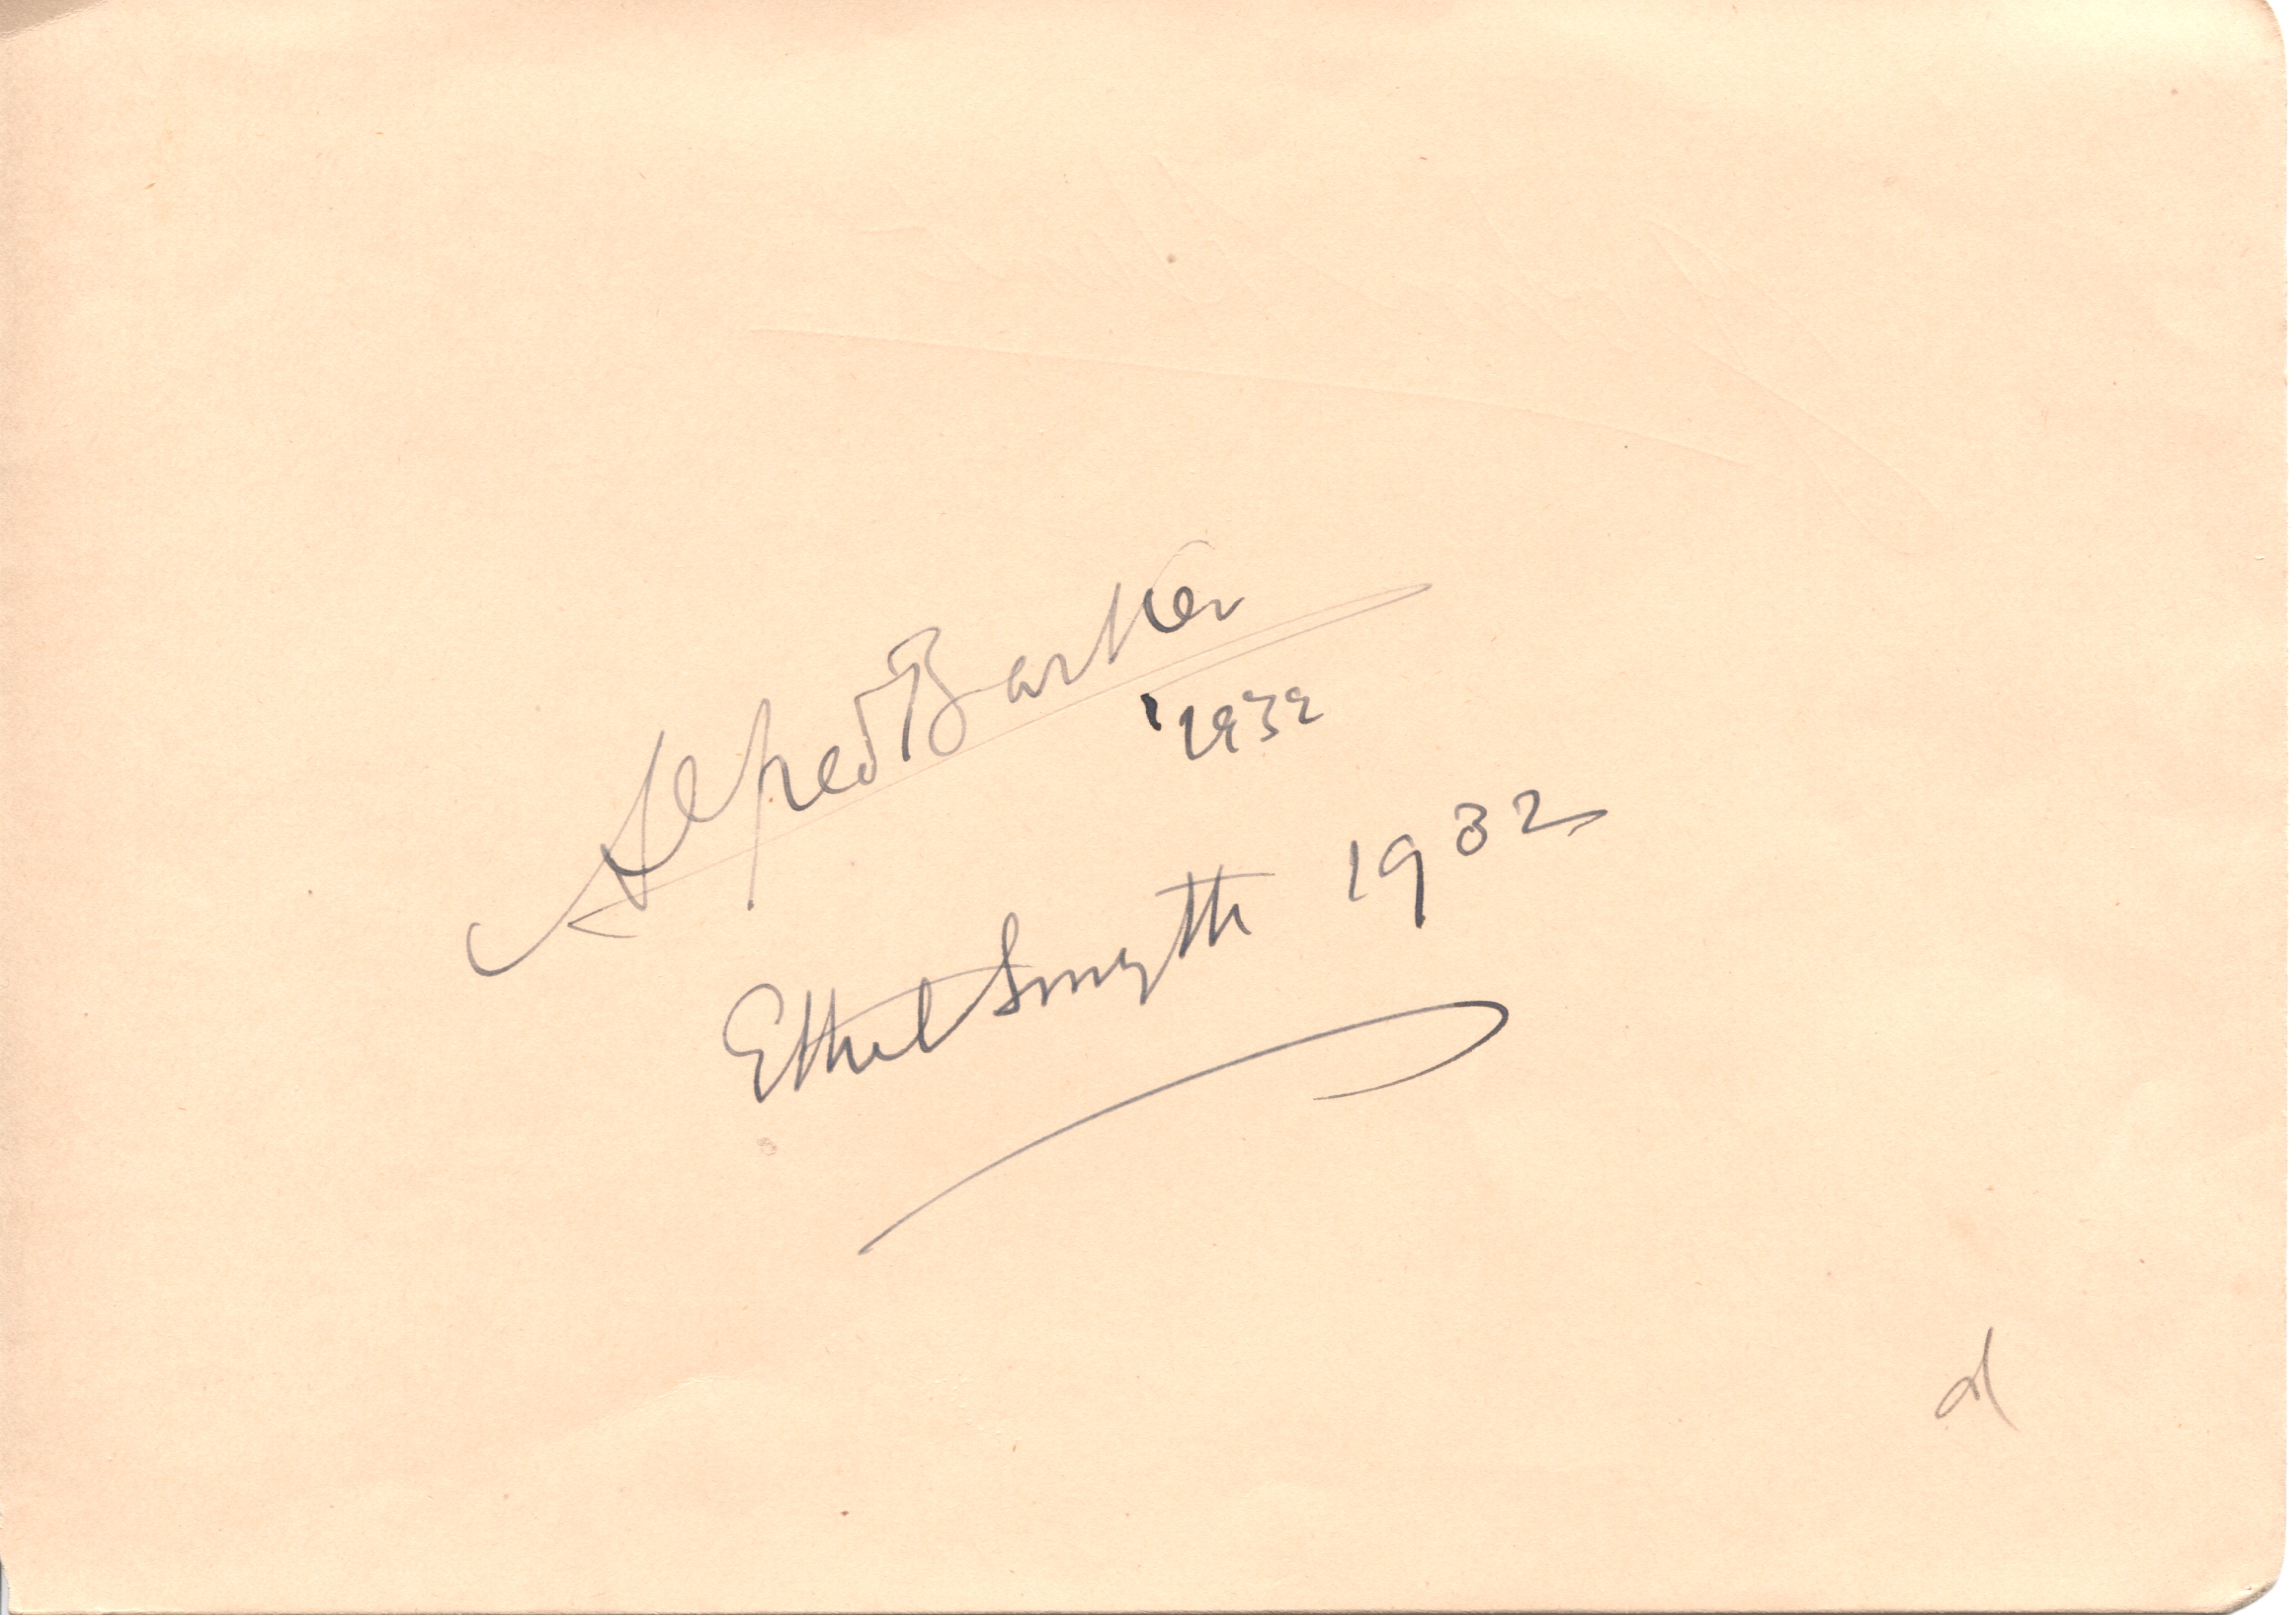 Alfred Barker
1932
Ethel Smyth 1932